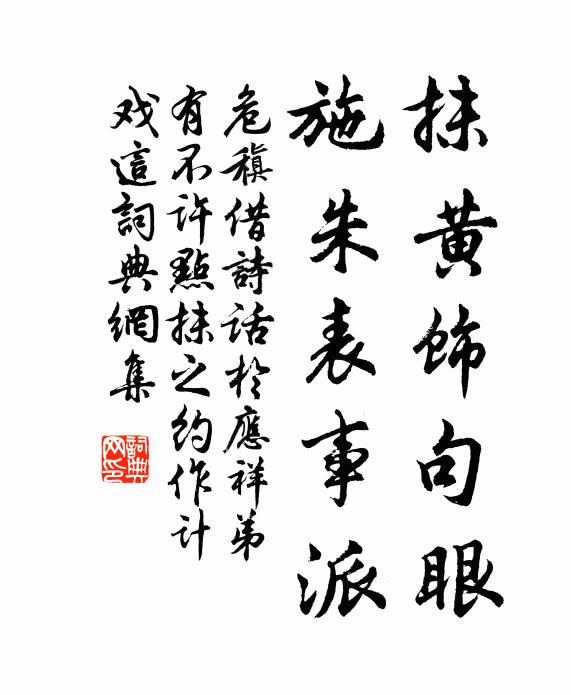 抹黄飾句眼
施朱表事派
危稹借詩話於應祥弟
有不許點抹之約作計
戏這詞典網集
詞典網印